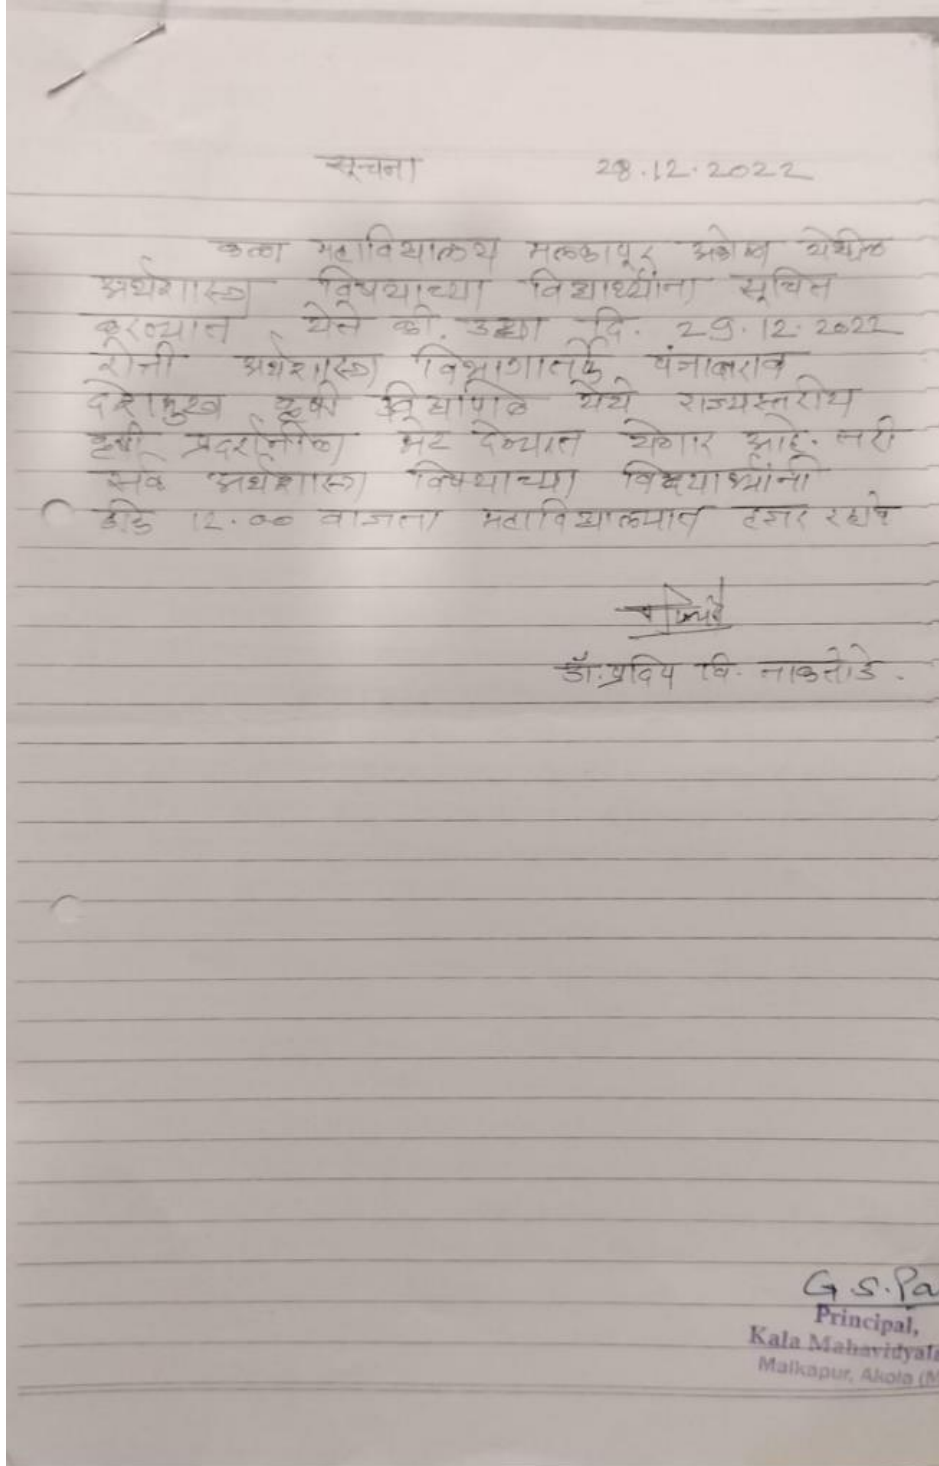 सूचना 28.12.2022
कला महाविद्यालय मलकापूर अकोला येथील
अर्थशास्त्र विषयाच्या विद्यार्थ्यांना सूचित
करण्यात येते की, उद्या दि. 29.12.2022
रोजी अर्थशास्त्र विभागातर्फे पंजाबराव
देशमुख कृषी येथे राज्यस्तरीय
कृषी प्रदर्शनीला भेट देण्यात येणार आहे. तरी
सर्व अर्थशास्त्र विषयाच्या विद्यार्थ्यांनी
ठीक 12.00 वाजता महाविद्यालयात हजर रहावे
डॉ. प्रदिप वि. नाकतोडे.
G.S.Pa
Principal,
Kala Mahavidyala
Malkapur, Akola (M